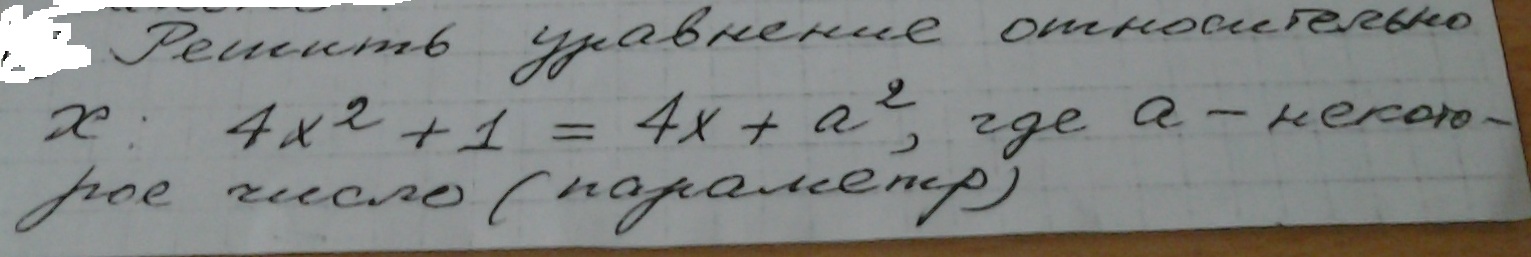 Решить уравнение относительно
x: 4x² + 1 = 4x + a², где a – некото-
рое число (параметр)